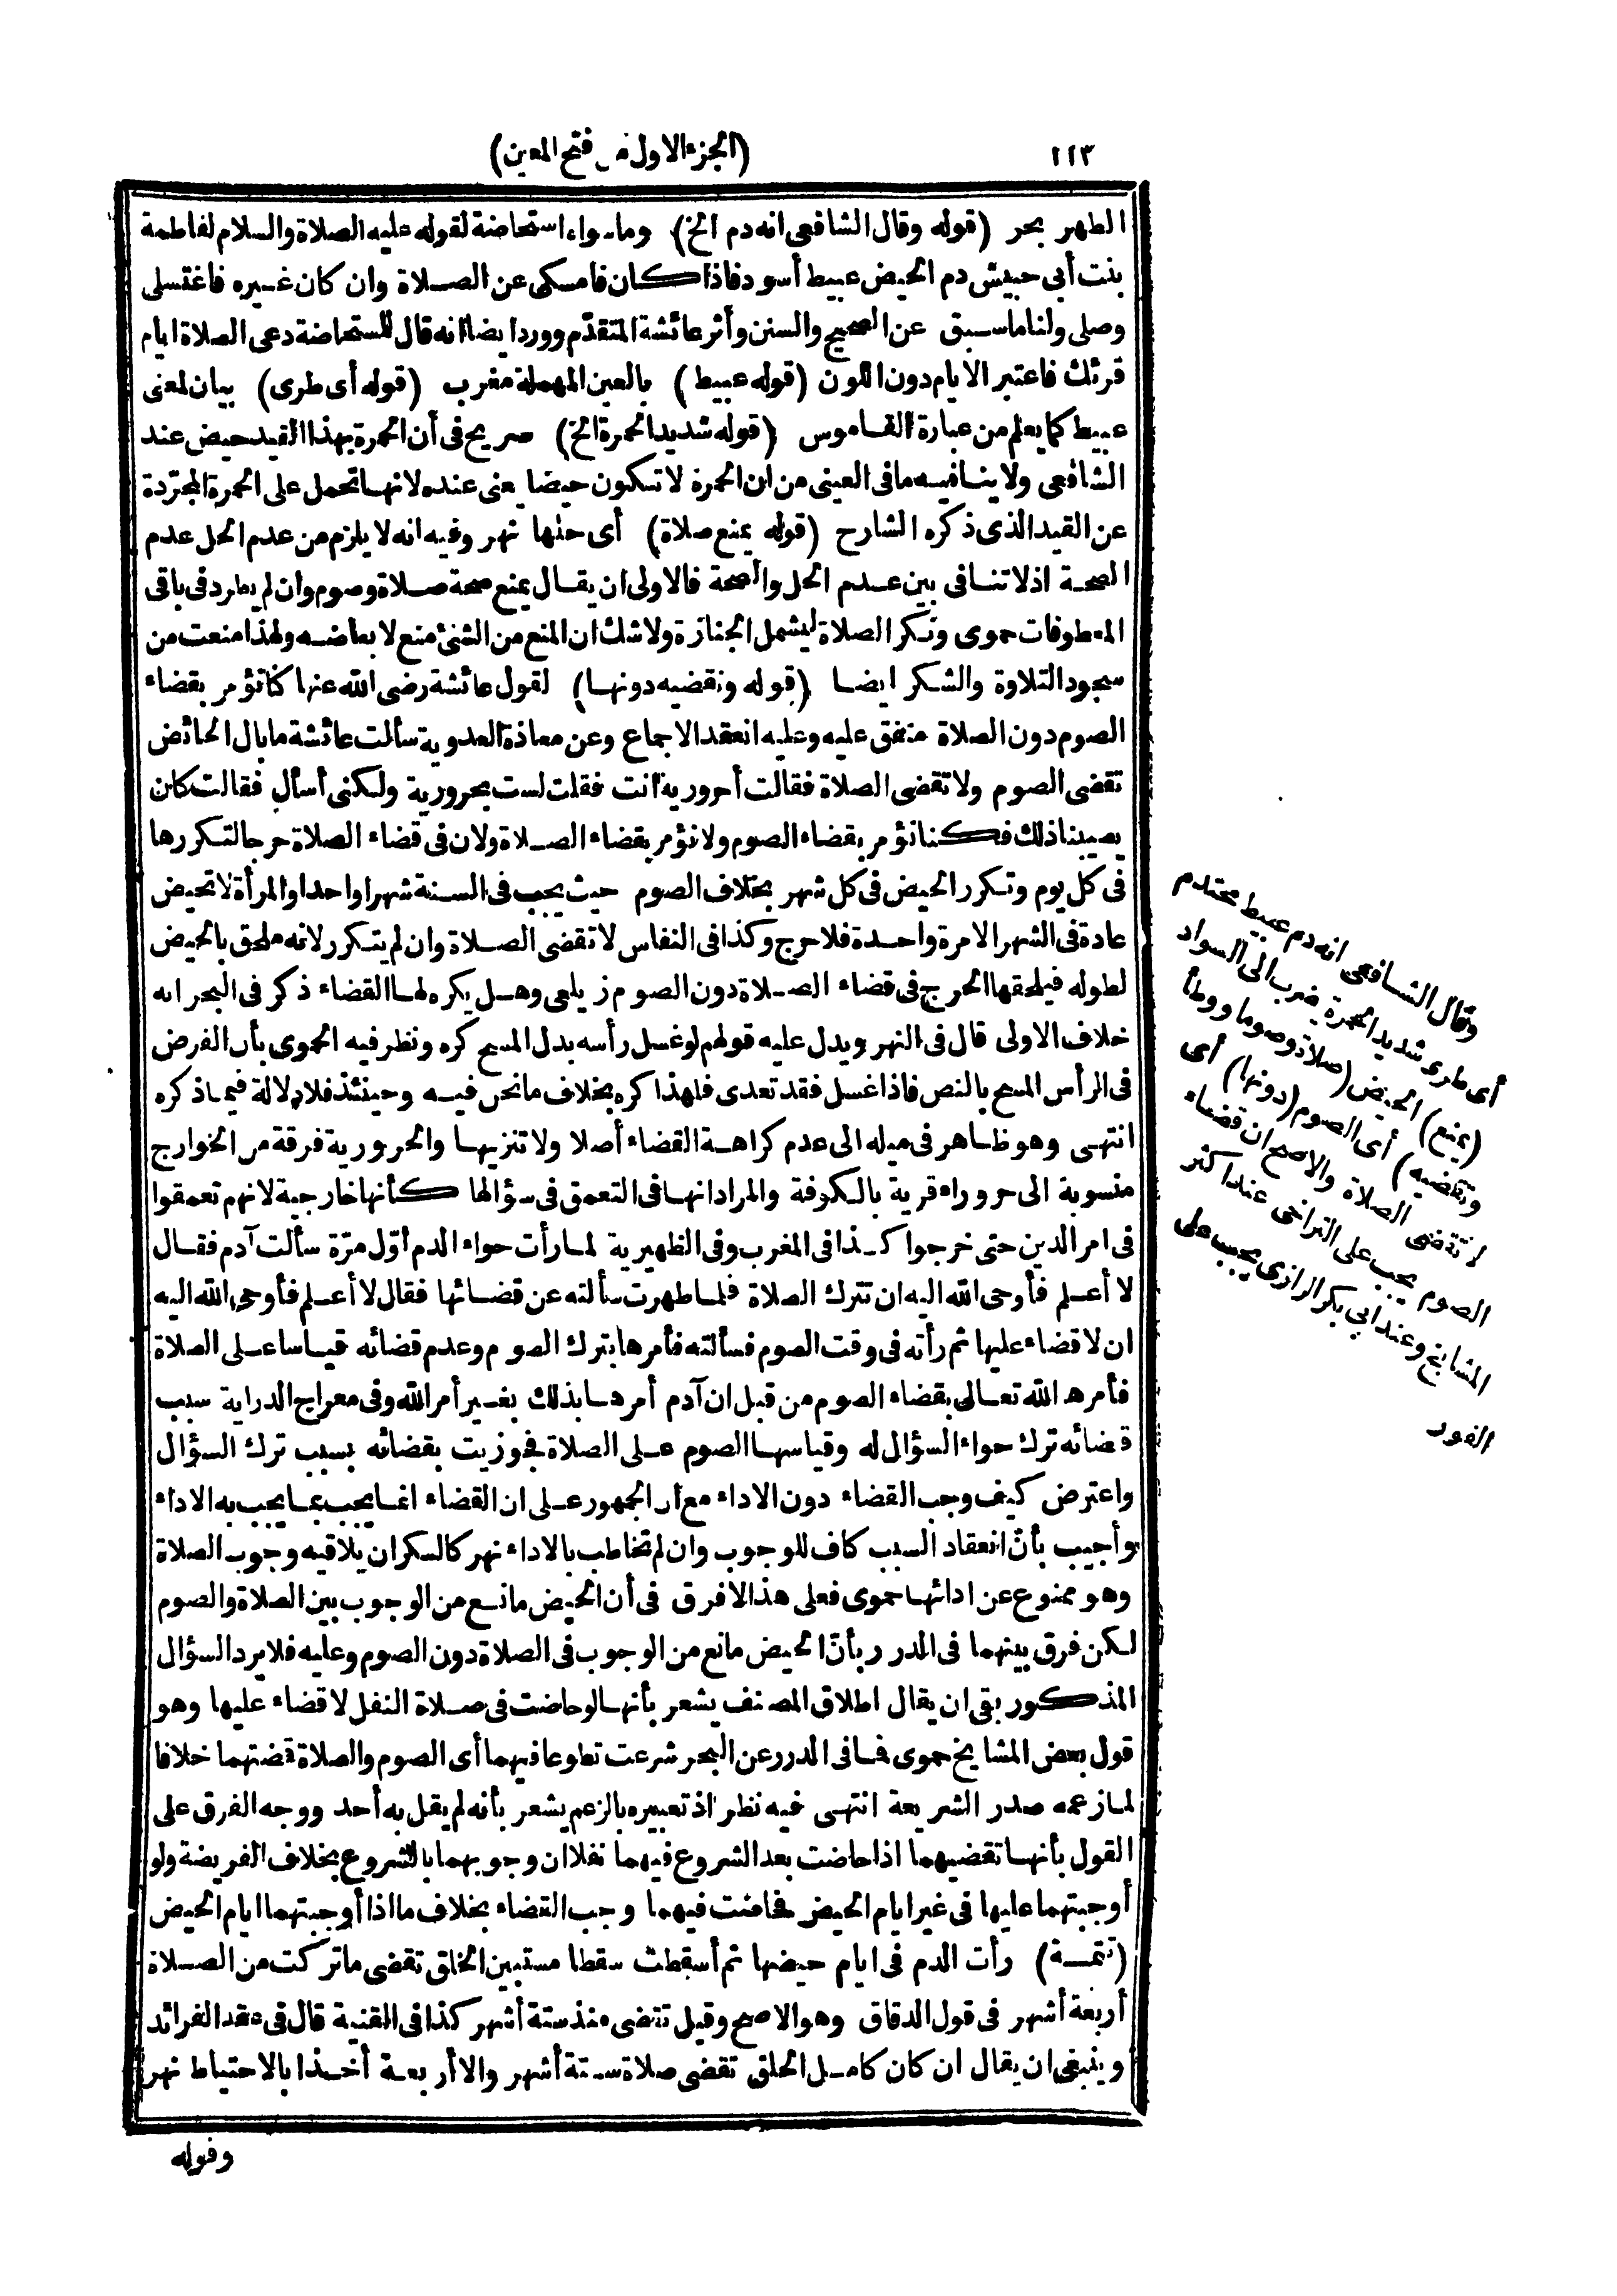 ١١٣
(الجزء الاول من فتح المعين)
الطهر بحر (قوله وقال الشافعى انه دم الخ) وما سواه استحاضة لقوله عليه الصلاة والسلام لفاطمة
بنت أبى حبيش دم الحيض عبيط أسود فاذا كان فامسكى عن الصلاة وان كان غيره فاغتسلى
وصلى ولنا ما سبق عن الصحيح والسنن وأثر عائشة المتقدّم وورد ايضا انه قال للمستحاضة دعى الصلاة ايام
قرئك فاعتبر الايام دون اللون (قوله عبيط) بالعين المهملة مغرب (قوله أى طرى) بيان لمعنى
عبيط كما يعلم من عبارة القاموس (قوله شديد الحمرة الخ) صريح فى أن الحمرة بهذا القيد حيض عند
الشافعى ولا ينافيه ما فى العينى من ان الحمرة لا تكون حيضا يعنى عنده لانها تحمل على الحمرة المجرّدة
عن القيد الذى ذكره الشارح (قوله يمنع صلاة) أى حلها نهر وفيه انه لا يلزم من عدم الحل عدم
الصحة اذ لا تنافى بين عدم الحل والصحة فالاولى ان يقال يمنع صحة صلاة وصوم وان لم يطرد فى باقى
المعطوفات حموى ونكر الصلاة ليشمل الجنازة ولا شك ان المنع من الشئ منع لابعاضه ولهذا منعت من
سجود التلاوة والشكر ايضا (قوله وتقضيه دونها) لقول عائشة رضى الله عنها كنا نؤمر بقضاء
الصوم دون الصلاة متفق عليه وعليه انعقد الاجماع وعن معاذة العدوية سألت عائشة ما بال الحائض
تقضى الصوم ولا تقضى الصلاة فقالت أحرورية انت فقلت لست بحرورية ولكنى أسأل فقالت كان
يصيبنا ذلك فكنا نؤمر بقضاء الصوم ولا نؤمر بقضاء الصلاة ولان فى قضاء الصلاة حرجا لتكررها
فى كل يوم وتكرر الحيض فى كل شهر بخلاف الصوم حيث يجب فى السنة شهرا واحدا والمرأة لا تحيض
عادة فى الشهر الا مرة واحدة فلا حرج وكذا فى النفاس لا تقضى الصلاة وان لم يتكرر لانه ملحق بالحيض
لطوله فيلحقها الحرج فى قضاء الصلاة دون الصوم زيلعى وهل يكره لها القضاء ذكر فى البحر انه
خلاف الاولى قال فى النهر ويدل عليه قولهم لو غسل رأسه بدل المسح كره ونظر فيه الحموى بأن الفرض
فى الرأس المسح بالنص فاذا غسل فقد تعدى فلهذا كره بخلاف ما نحن فيه وحينئذ فلا دلالة فيما ذكره
انتهى وهو ظاهر فى ميله الى عدم كراهة القضاء أصلا ولا تنزيها والحرورية فرقة من الخوارج
منسوبة الى حروراء قرية بالكوفة والمراد انها فى التعمق فى سؤالها كأنها خارجية لانهم تعمقوا
فى امر الدين حتى خرجوا كذا فى المغرب وفى الظهيرية لما رأت حواء الدم اوّل مرّة سألت آدم فقال
لا أعلم فأوحى الله اليه ان تترك الصلاة فلما طهرت سألته عن قضائها فقال لا أعلم فأوحى الله اليه
ان لا قضاء عليها ثم رأته فى وقت الصوم فسألته فأمرها بترك الصوم وعدم قضائه قياسا على الصلاة
فأمره الله تعالى بقضاء الصوم من قبل ان آدم أمرها بذلك بغير أمر الله وفى معراج الدراية سبب
قضائه ترك حواء السؤال له وقياسها الصوم على الصلاة فجوزيت بقضائه بسبب ترك السؤال
واعترض كيف وجب القضاء دون الاداء مع أن الجمهور على ان القضاء انما يجب بما يجب به الاداء
وأجيب بأنّ انعقاد السبب كاف للوجوب وان لم تخاطب بالاداء نهر كالسكران يلاقيه وجوب الصلاة
وهو ممنوع عن ادائها حموى فعلى هذا لا فرق فى أن الحيض مانع من الوجوب بين الصلاة والصوم
لكن فرق بينهما فى الدرر بأنّ الحيض مانع من الوجوب فى الصلاة دون الصوم وعليه فلا يرد السؤال
المذكور بقى ان يقال اطلاق المصنف يشعر بأنها لو حاضت فى صلاة النفل لا قضاء عليها وهو
قول بعض المشايخ حموى فما فى الدرر عن البحر شرعت تطوعا فيهما أى الصوم والصلاة قضتهما خلافا
لما زعمه صدر الشريعة انتهى فيه نظر اذ تعبيره بالزعم يشعر بأنه لم يقل به أحد ووجه الفرق على
القول بأنها تقضيهما اذا حاضت بعد الشروع فيهما نفلا ان وجوبهما بالشروع بخلاف الفريضة ولو
أوجبتهما عليها فى غير ايام الحيض فحاضت فيهما وجب القضاء بخلاف ما اذا أوجبتهما ايام الحيض
(تتمة) رأت الدم فى ايام حيضها ثم أسقطت سقطا مستبين الخلق تقضى ما تركت من الصلاة
أربعة أشهر فى قول الدقاق وهو الاصح وقيل تقضى منذ ستة أشهر كذا فى القنية قال فى عقد الفرائد
وينبغى ان يقال ان كان كامل الخلق تقضى صلاة ستة أشهر والا أربعة أخذا بالاحتياط نهر
وقوله
وقال الشافعى انه دم عبيط محتدم
أى طرى شديد الحمرة يضرب الى السواد
(يمنع) الحيض (صلاة وصوما ووطأ
وتقضيه) أى الصوم (دونها) أى
لا تقضى الصلاة والاصح ان قضاء
الصوم يجب على التراخى عند اكثر
المشايخ وعند ابى بكر الرازى يجب على
الفور